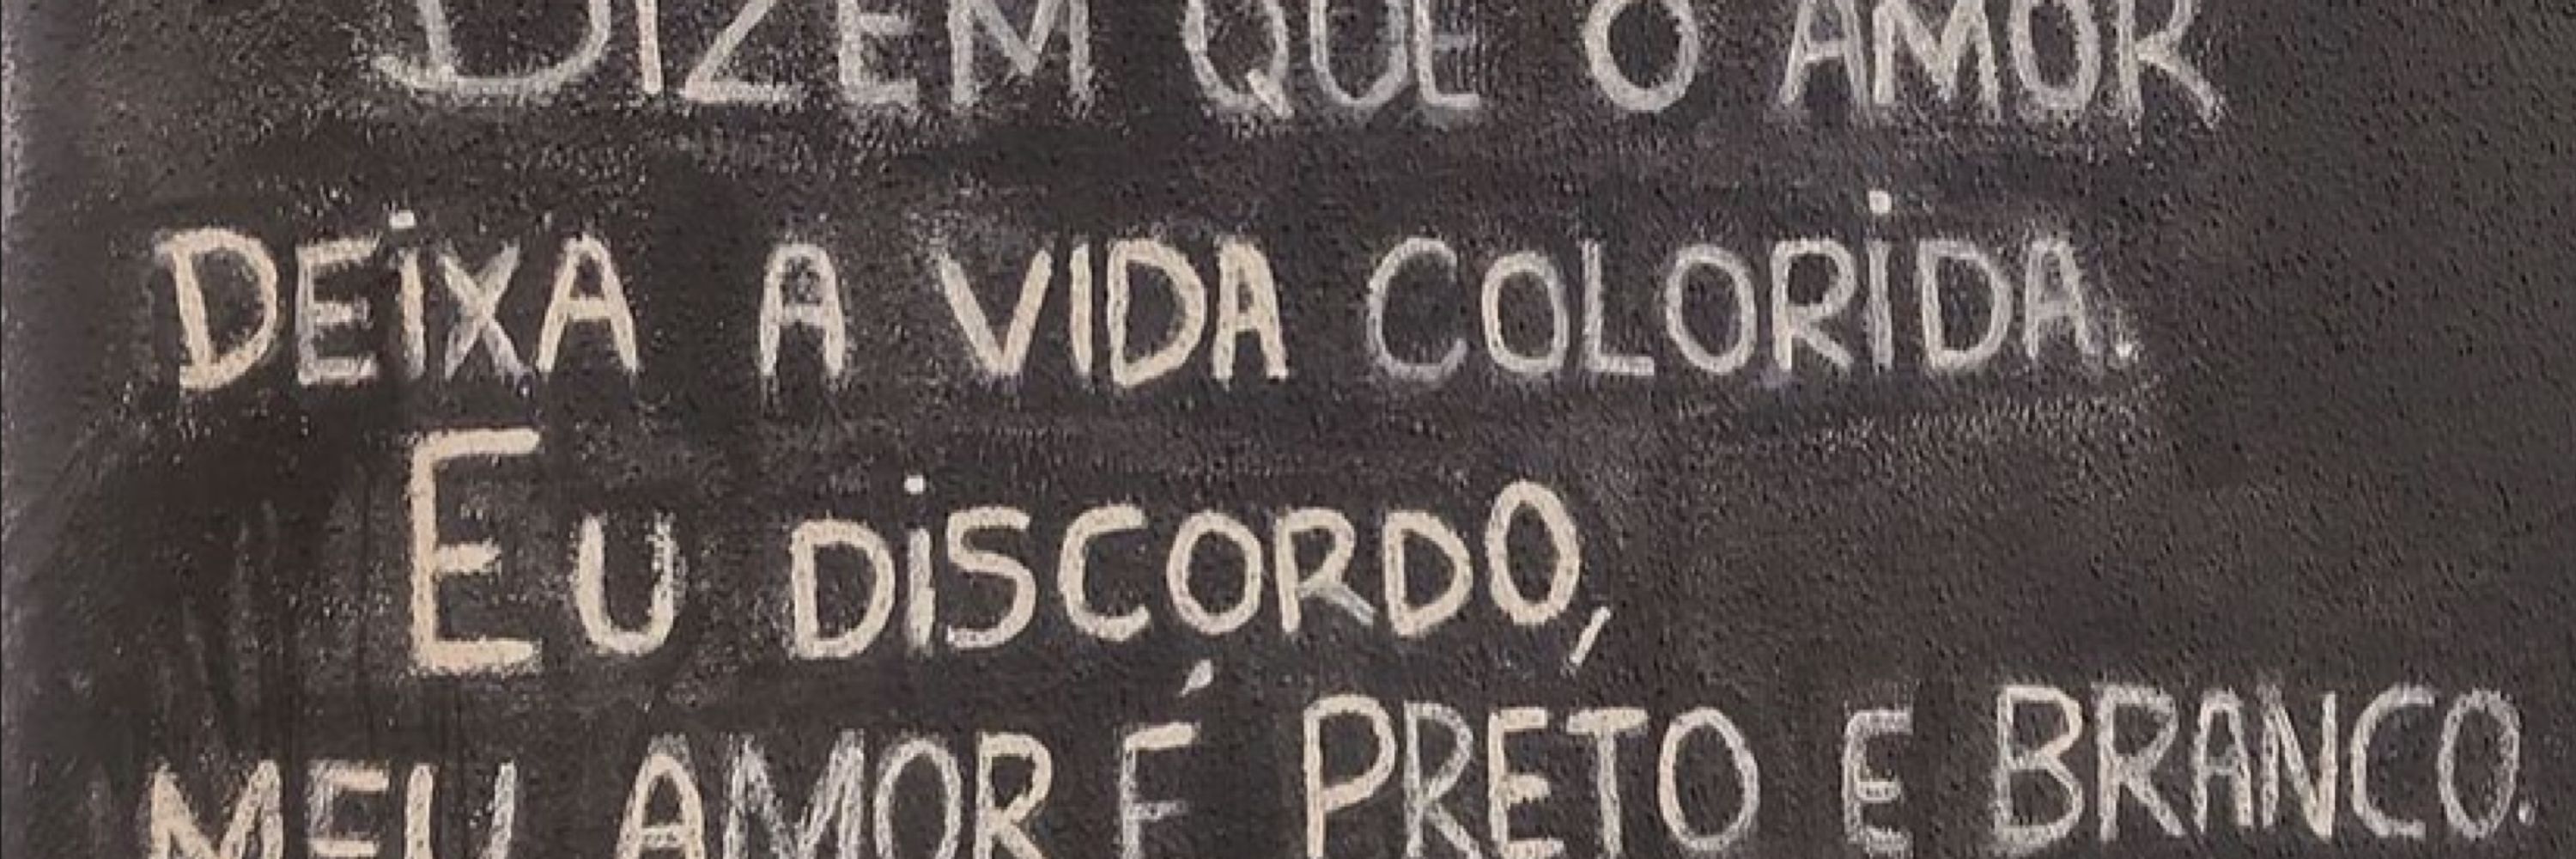 DIZEM QUE O AMOR
DEiXA A VIDA COLORiDA.
EU DiSCORDO,
MEU AMOR É PRETO E BRANCO.